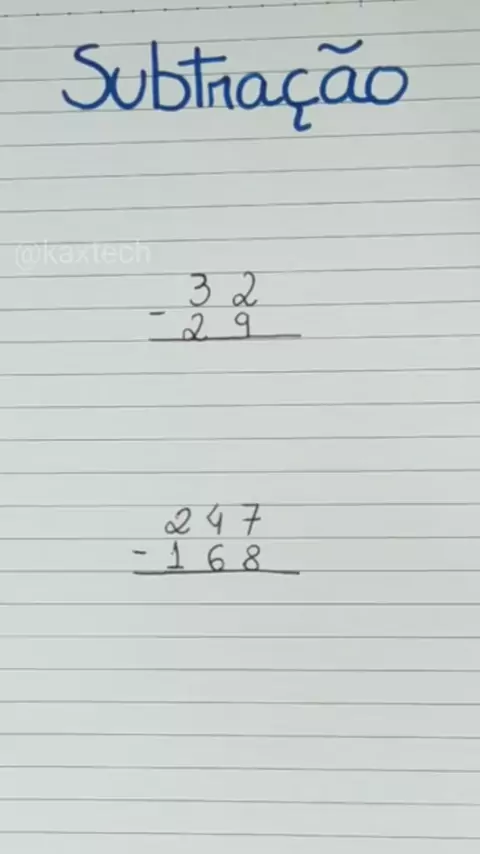 Subtração
@kaxtech
3 2
- 2 9
2 4 7
- 1 6 8